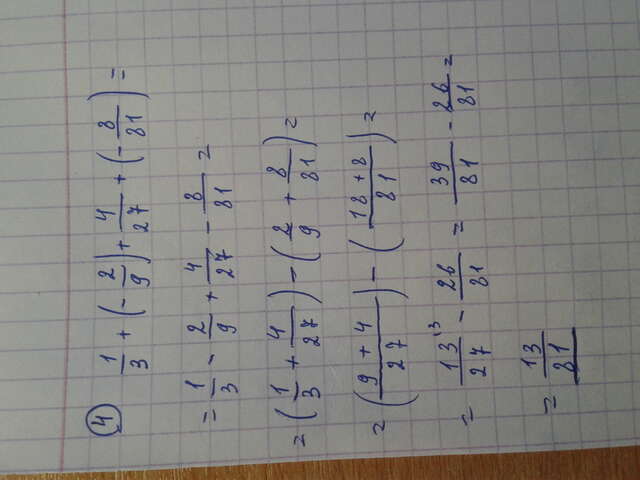 ④ 1/3 + (- 2/9) + 4/27 + (- 8/81) =
= 1/3 - 2/9 + 4/27 - 8/81 =
= (1/3 + 4/27) - (2/9 + 8/81) =
= ((9 + 4)/27) - ((18 + 8)/81) =
= 13/27 ⁽³ - 26/81 = 39/81 - 26/81 =
= 13/81